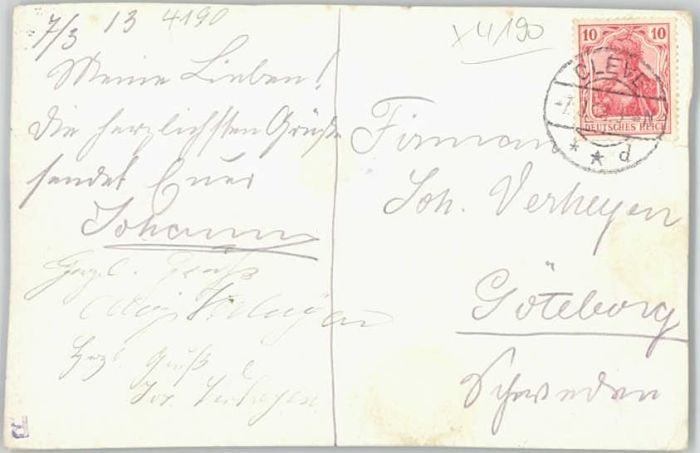 7/3 13 4190
Meine Lieben!
Die herzlichsten Grüße
sendet Euer
Johann
Herzl. Gruß
Verheyen
Herzl. Gruß
Jos. Verheyen
x 4190
10 10
DEUTSCHES REICH
CLEVE
* * d
Firma
Joh. Verheyen
Göteborg
Schweden